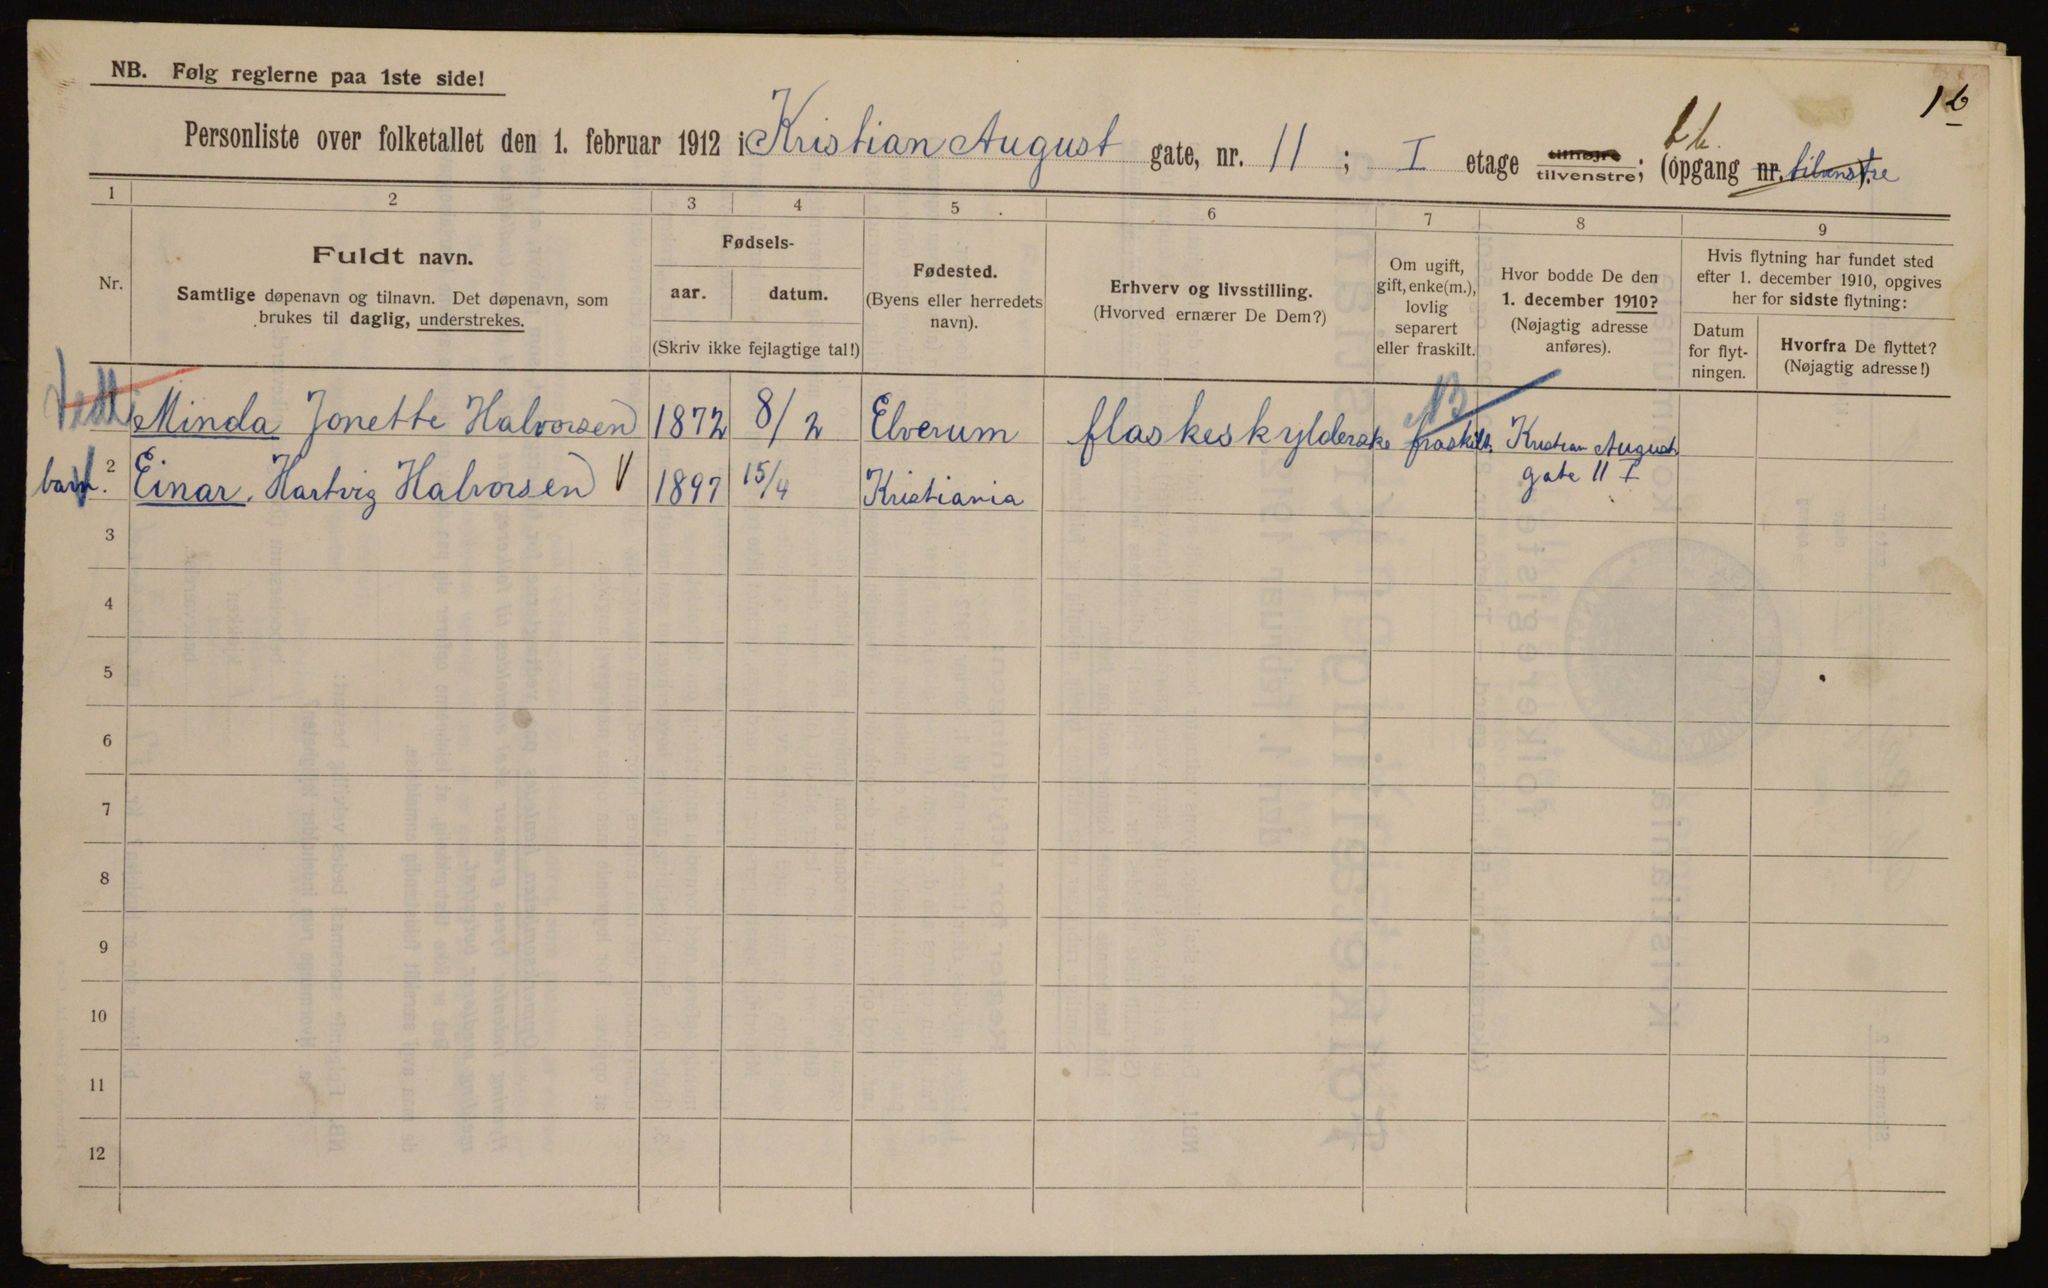 NB. Følg reglerne paa 1ste side!
16
Personliste over folketallet den 1. februar 1912 i Kristian August gate, nr. 11 ; I etage tilhøjre tilvenstre; (opgang nr. tilvenstre).
1 2 3 4 5 6 7 8 9
Nr.
Fuldt navn.
Samtlige døpenavn og tilnavn. Det døpenavn, som
brukes til daglig, understrekes.
Fødsels-
aar. datum.
(Skriv ikke fejlagtige tal!)
Fødested.
(Byens eller herredets
navn).
Erhverv og livsstilling.
(Hvorved ernærer De Dem?)
Om ugift,
gift, enke(m.),
lovlig
separert
eller fraskilt.
Hvor bodde De den
1. december 1910?
(Nøjagtig adresse
anføres).
Hvis flytning har fundet sted
efter 1. december 1910, opgives
her for sidste flytning:
Datum
for flyt-
ningen.
Hvorfra De flyttet?
(Nøjagtig adresse!)
Minda Jonette Halvorsen 1872 8/2 Elverum flaskeskylderske fraskilt. Kristian August
gate 11 I
barn. 2 Einar. Hartvig Halvorsen 1897 15/4 Kristiania
3
4
5
6
7
8
9
10
11
12